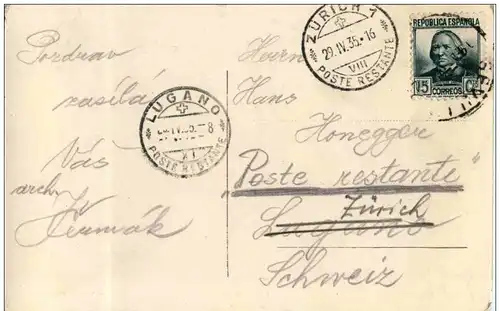 Pozdrav
zasílá
Váš
arch.
ZÜRICH 1
29.IV.35.-16
VIII
POSTE RESTANTE
LUGANO
-8
VI
POSTE RESTANTE
REPUBLICA ESPAÑOLA
15 CTS
CORREOS
Herrn
Hans
Honegger
"Poste restante"
Zürich
Lugano
Schweiz